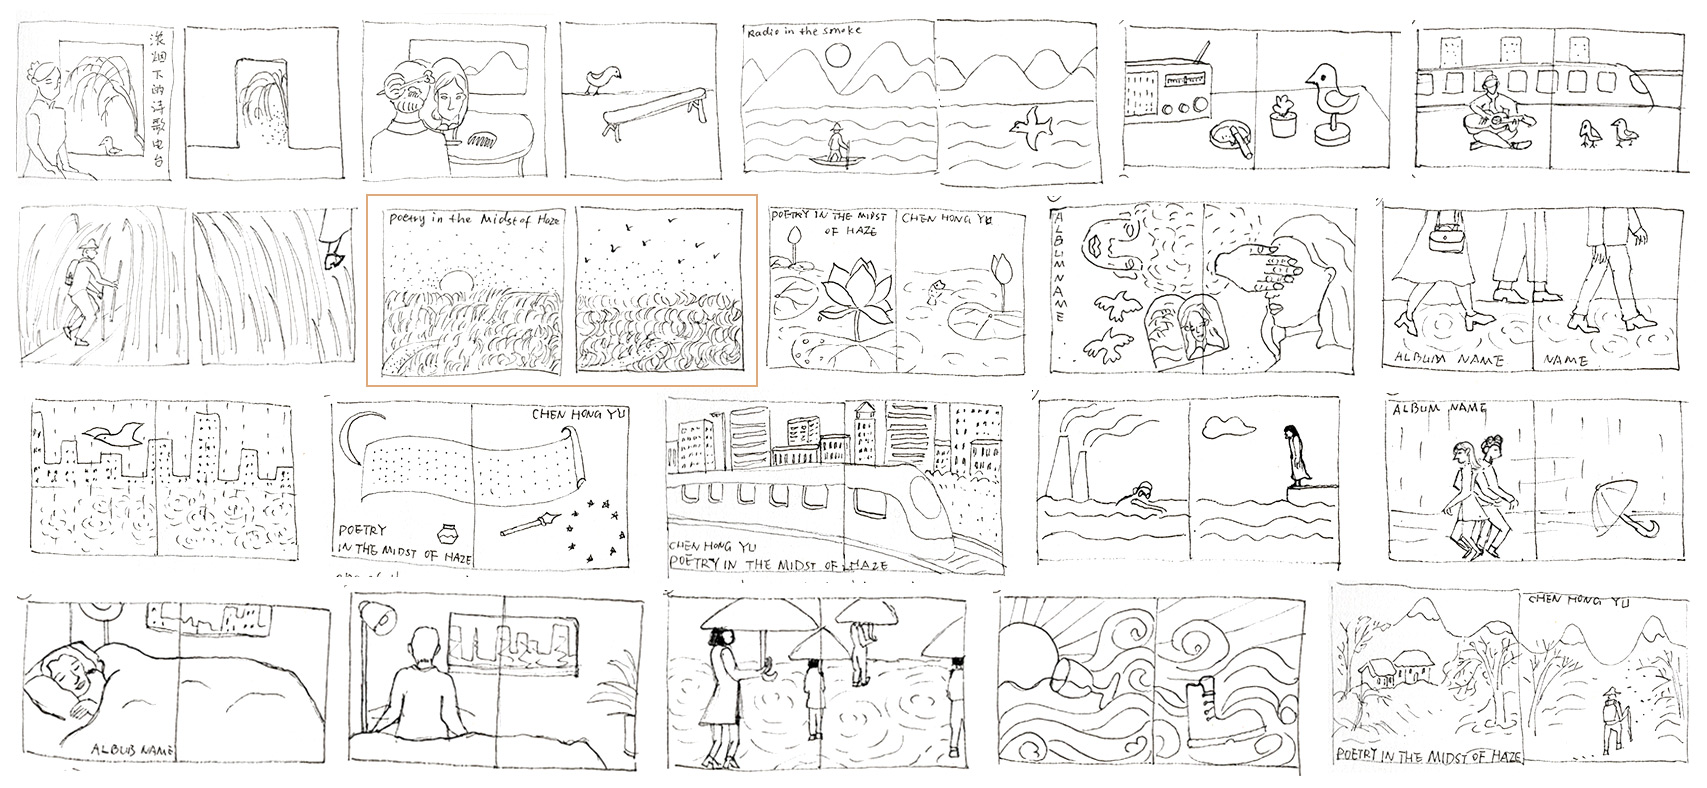 浓烟下的诗歌电台
Radio in the smoke
Poetry in the Midst of Haze
POETRY IN THE MIDST
OF HAZE
CHEN HONG YU
ALBUM NAME
ALBUM NAME
NAME
CHEN HONG YU
POETRY
IN THE MIDST OF HAZE
CHEN HONG YU
POETRY IN THE MIDST OF HAZE
ALBUM NAME
ALBUB NAME
CHEN HONG YU
POETRY IN THE MIDST OF HAZE